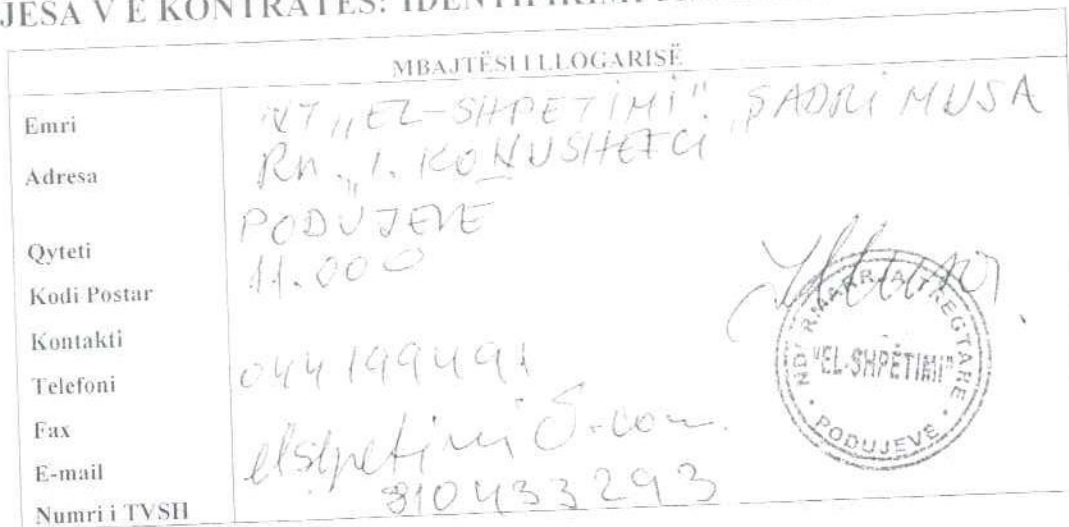 JESA V E KONTRATËS: IDENTIFIKIMI
MBAJTËSI I LLOGARISË
Emri NT "EL-SHPETIMI" SADRI MUSA
Adresa Rn. "I. KONUSHEFCI
Qyteti PODUJEVE
Kodi Postar 11.000
Kontakti
Telefoni 044 199491
Fax
E-mail elshpetimi
Numri i TVSH 310433293
NDËRMARRJA TREGTARE
"EL-SHPËTIMI"
PODUJEVË